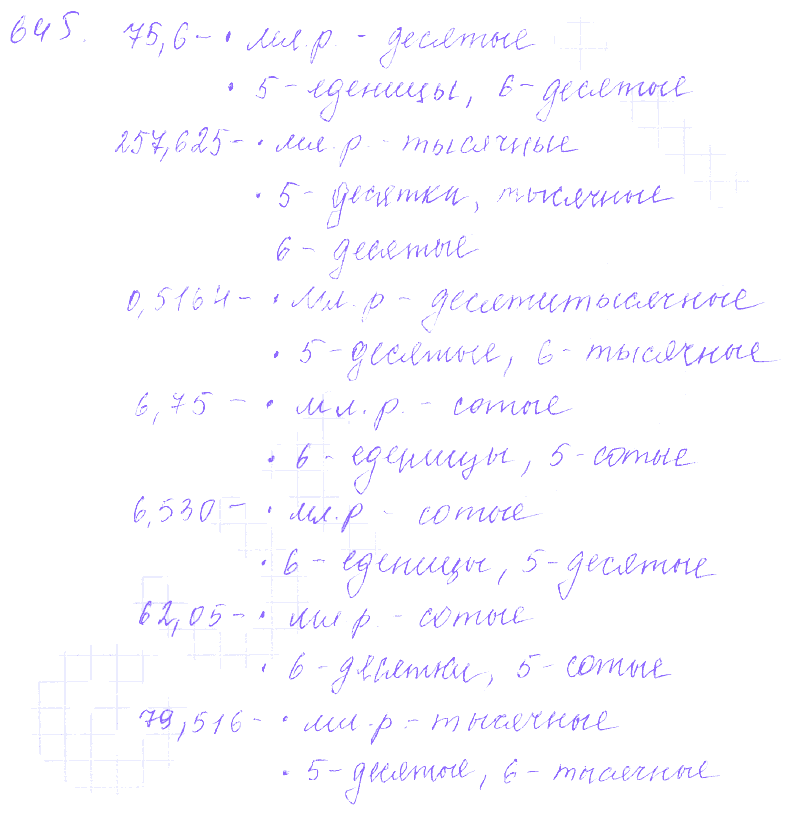 645. 75,6 - • мл.р. - десятые
• 5 - еденицы, 6 - десятые
257,625 - • мл.р. - тысячные
• 5 - десятки, тысячные
6 - десятые
0,5164 - • мл.р - десятитысячные
• 5 - десятые, 6 - тысячные
6,75 - • мл.р. - сотые
• 6 - еденицы, 5 - сотые
6,530 - • мл.р - сотые
• 6 - еденицы, 5 - десятые
62,05 - • мл р. - сотые
• 6 - десятки, 5 - сотые
79,516 - • мл.р. - тысячные
• 5 - десятые, 6 - тысячные